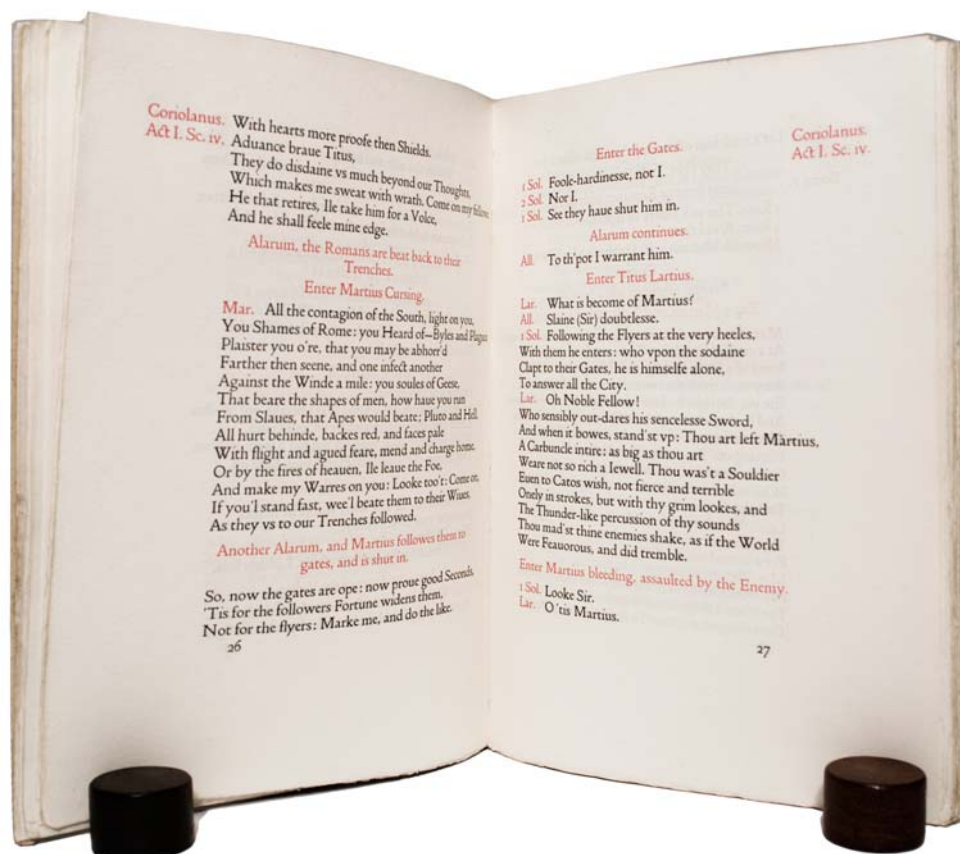 Coriolanus.
Act I. Sc. iv.
With hearts more proofe then Shields.
Aduance braue Titus,
They do disdaine vs much beyond our Thoughts,
Which makes me sweat with wrath. Come on my fellows
He that retires, Ile take him for a Volce,
And he shall feele mine edge.
Alarum, the Romans are beat back to their
Trenches.
Enter Martius Cursing.
Mar. All the contagion of the South, light on you,
You Shames of Rome: you Heard of—Byles and Plagues
Plaister you o're, that you may be abhorr'd
Farther then seene, and one infect another
Against the Winde a mile: you soules of Geese,
That beare the shapes of men, how haue you run
From Slaues, that Apes would beate; Pluto and Hell.
All hurt behinde, backes red, and faces pale
With flight and agued feare, mend and charge home,
Or by the fires of heauen, Ile leaue the Foe,
And make my Warres on you: Looke too't: Come on,
If you'l stand fast, wee'l beate them to their Wiues,
As they vs to our Trenches followed.
Another Alarum, and Martius followes them to
gates, and is shut in.
So, now the gates are ope: now proue good Seconds,
'Tis for the followers Fortune widens them,
Not for the flyers: Marke me, and do the like.
26
Coriolanus.
Act I. Sc. iv.
Enter the Gates.
1 Sol. Foole-hardinesse, not I.
2 Sol. Nor I.
1 Sol. See they haue shut him in.
Alarum continues.
All. To th'pot I warrant him.
Enter Titus Lartius.
Lar. What is become of Martius?
All. Slaine (Sir) doubtlesse.
1 Sol. Following the Flyers at the very heeles,
With them he enters: who vpon the sodaine
Clapt to their Gates, he is himselfe alone,
To answer all the City.
Lar. Oh Noble Fellow!
Who sensibly out-dares his sencelesse Sword,
And when it bowes, stand'st vp: Thou art left Martius,
A Carbuncle intire: as big as thou art
Weare not so rich a Iewell. Thou was't a Souldier
Euen to Catos wish, not fierce and terrible
Onely in strokes, but with thy grim lookes, and
The Thunder-like percussion of thy sounds
Thou mad'st thine enemies shake, as if the World
Were Feauorous, and did tremble.
Enter Martius bleeding, assaulted by the Enemy.
1 Sol. Looke Sir.
Lar. O 'tis Martius.
27